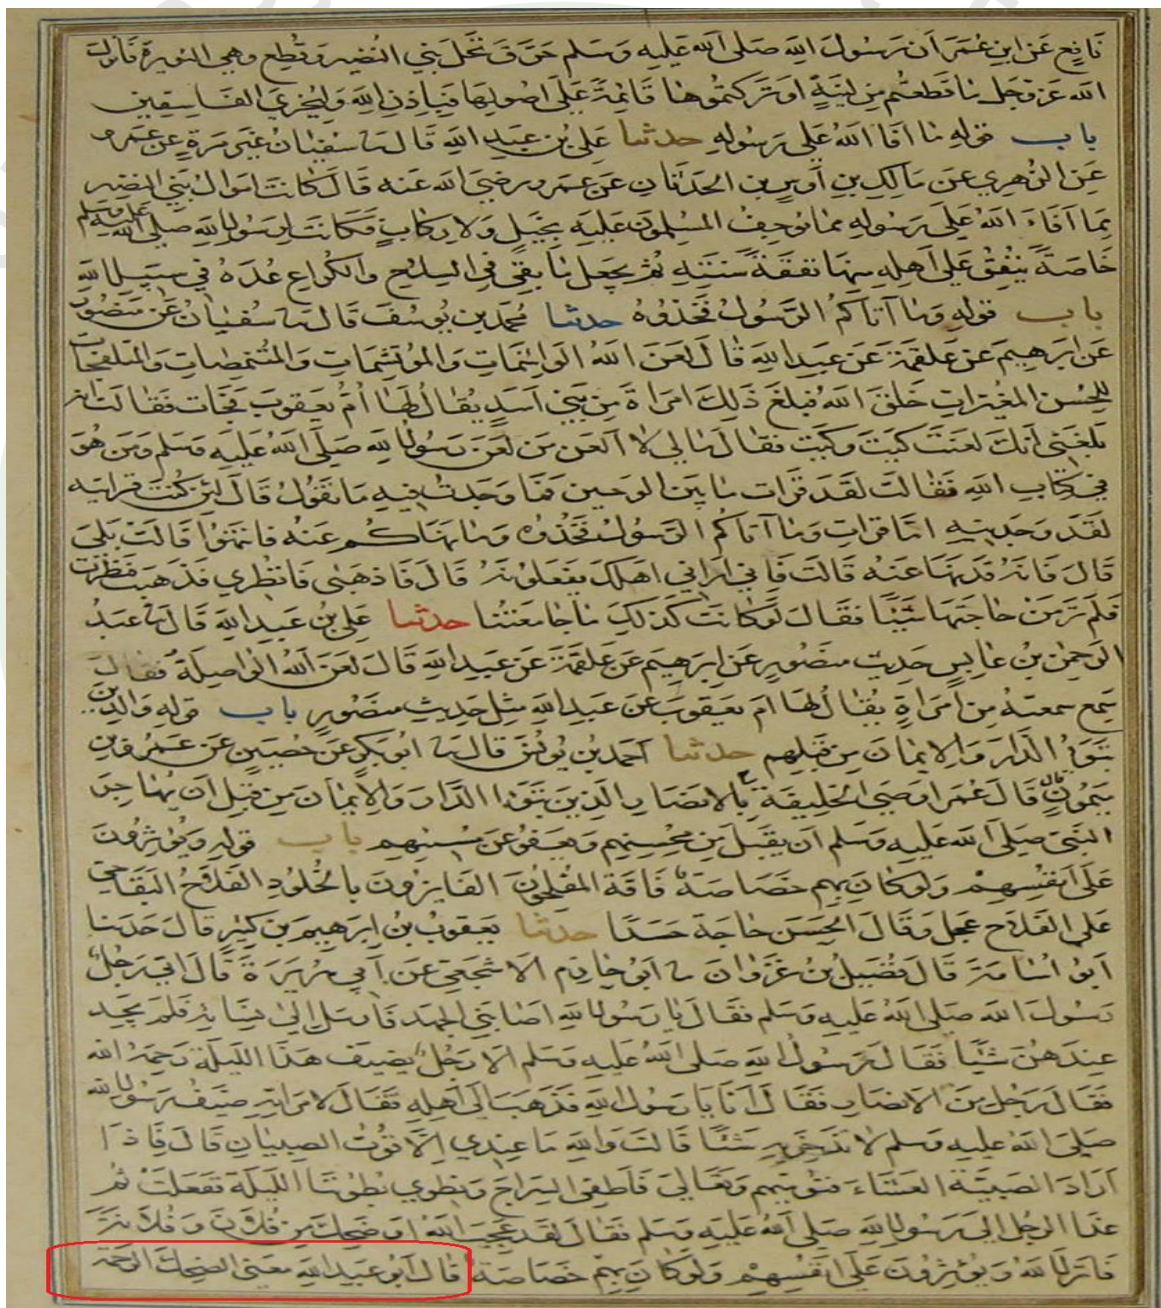 نافع عن ابن عمر ان رسول الله صلى الله عليه وسلم حرق نخل بني النضير وقطع وهي البويرة فانزل
الله عز وجل ما قطعتم من لينة او تركتموها قائمة على اصولها فباذن الله وليخزي الفاسقين
باب قوله ما افا الله على رسوله حدثنا علي بن عبد الله قال سفيان غير مرة عن عمرو
عن الزهري عن مالك بن أوس بن الحدثان عن عمر رضي الله عنه قال كانت اموال بني النضير
مما آفاء الله على رسوله مما يوجف المسلمون عليه بخيل ولا ركاب فكانت لرسول الله صلى الله عليه وسلم
خاصة ينفق على أهله منها نفقة سنته ثم يجعل ما بقي في السلاح والكراع عدة في سبيل الله
باب قوله وما آتاكم الرسول فخذوه حدثنا محمد بن يوسف قال سفيان عن منصور
عن ابرهيم عن علقمة عن عبد الله قال لعن الله الواشمات والموتشمات والمتنمصات والمتفلجات
للحسن المغيرات خلق الله فبلغ ذلك امراة من بني أسد يقال لها أم يعقوب فجات فقالت انه
بلغني أنك لعنت كيت وكيت فقال مالي لا العن من لعن رسول الله صلى الله عليه وسلم ومن هو
في كتاب الله فقالت لقد قرات ما بين اللوحين فما وجدت فيه ما تقول قال لئن كنت قراتيه
لقد وجدتيه اما قرات وما آتاكم الرسول فخذوه وما نهاكم عنه فانتهوا قالت بلى
قال فانه قد نهى عنه قالت فاني ارى اهلك يفعلونه قال فاذهبي فانظري فذهبت فنظرت
فلم تر من حاجتها شيئا فقال لو كانت كذلك ما جامعتنا حدثنا علي بن عبد الله قال عبد
الرحمن بن عابس حديث منصور عن ابرهيم عن علقمة عن عبد الله قال لعن الله الواصلة فقال
سمعته من امراة يقال لها ام يعقوب عن عبد الله مثل حديث منصور باب قوله والذين
تبوؤ الدار والايمان من قبلهم حدثنا احمد بن يونس قال ابو بكر عن حصين عن عمرو بن
ميمون قال قال عمر اوصي الخليفة بالانصار الذين تبوؤا الدار والايمان من قبل ان يهاجر
النبي صلى الله عليه وسلم ان يقبل من محسنهم ويعفو عن مسيئهم باب قوله ويؤثرون
على انفسهم ولو كان بهم خصاصة فاقة المفلحون الفايزون بالخلود الفلاح البقا حي
على الفلاح عجل وقال الحسن حاجة حسدا حدثنا يعقوب بن ابرهيم بن كثير قال حدثنا
ابو اسامة قال فضيل بن غزوان ابو حازم الاشجعي عن أبي هريرة قال اتى رجل
رسول الله صلى الله عليه وسلم فقال يا رسول الله اصابني الجهد فارسل الى نسائه فلم يجد
عندهن شيئا فقال رسول الله صلى الله عليه وسلم الا رجل يضيف هذا الليلة رحمه الله
فقال رجل من الانصار فقال أنا يا رسول الله فذهب الى أهله فقال لامراته ضيف رسول الله
صلى الله عليه وسلم لا تدخريه شئا قالت والله ما عندي الا قوت الصبيان قال فاذا
اراد الصبية العشاء فنوميهم وتعالي فاطفي السراج ونطوي بطوننا الليلة ففعلت ثم
غدا الرجل الى رسول الله صلى الله عليه وسلم فقال لقد عجب الله او ضحك من فلان وفلانة
فانزل الله ويؤثرون على انفسهم ولو كان بهم خصاصة قال أبو عبد الله معنى الضحك الرحمة